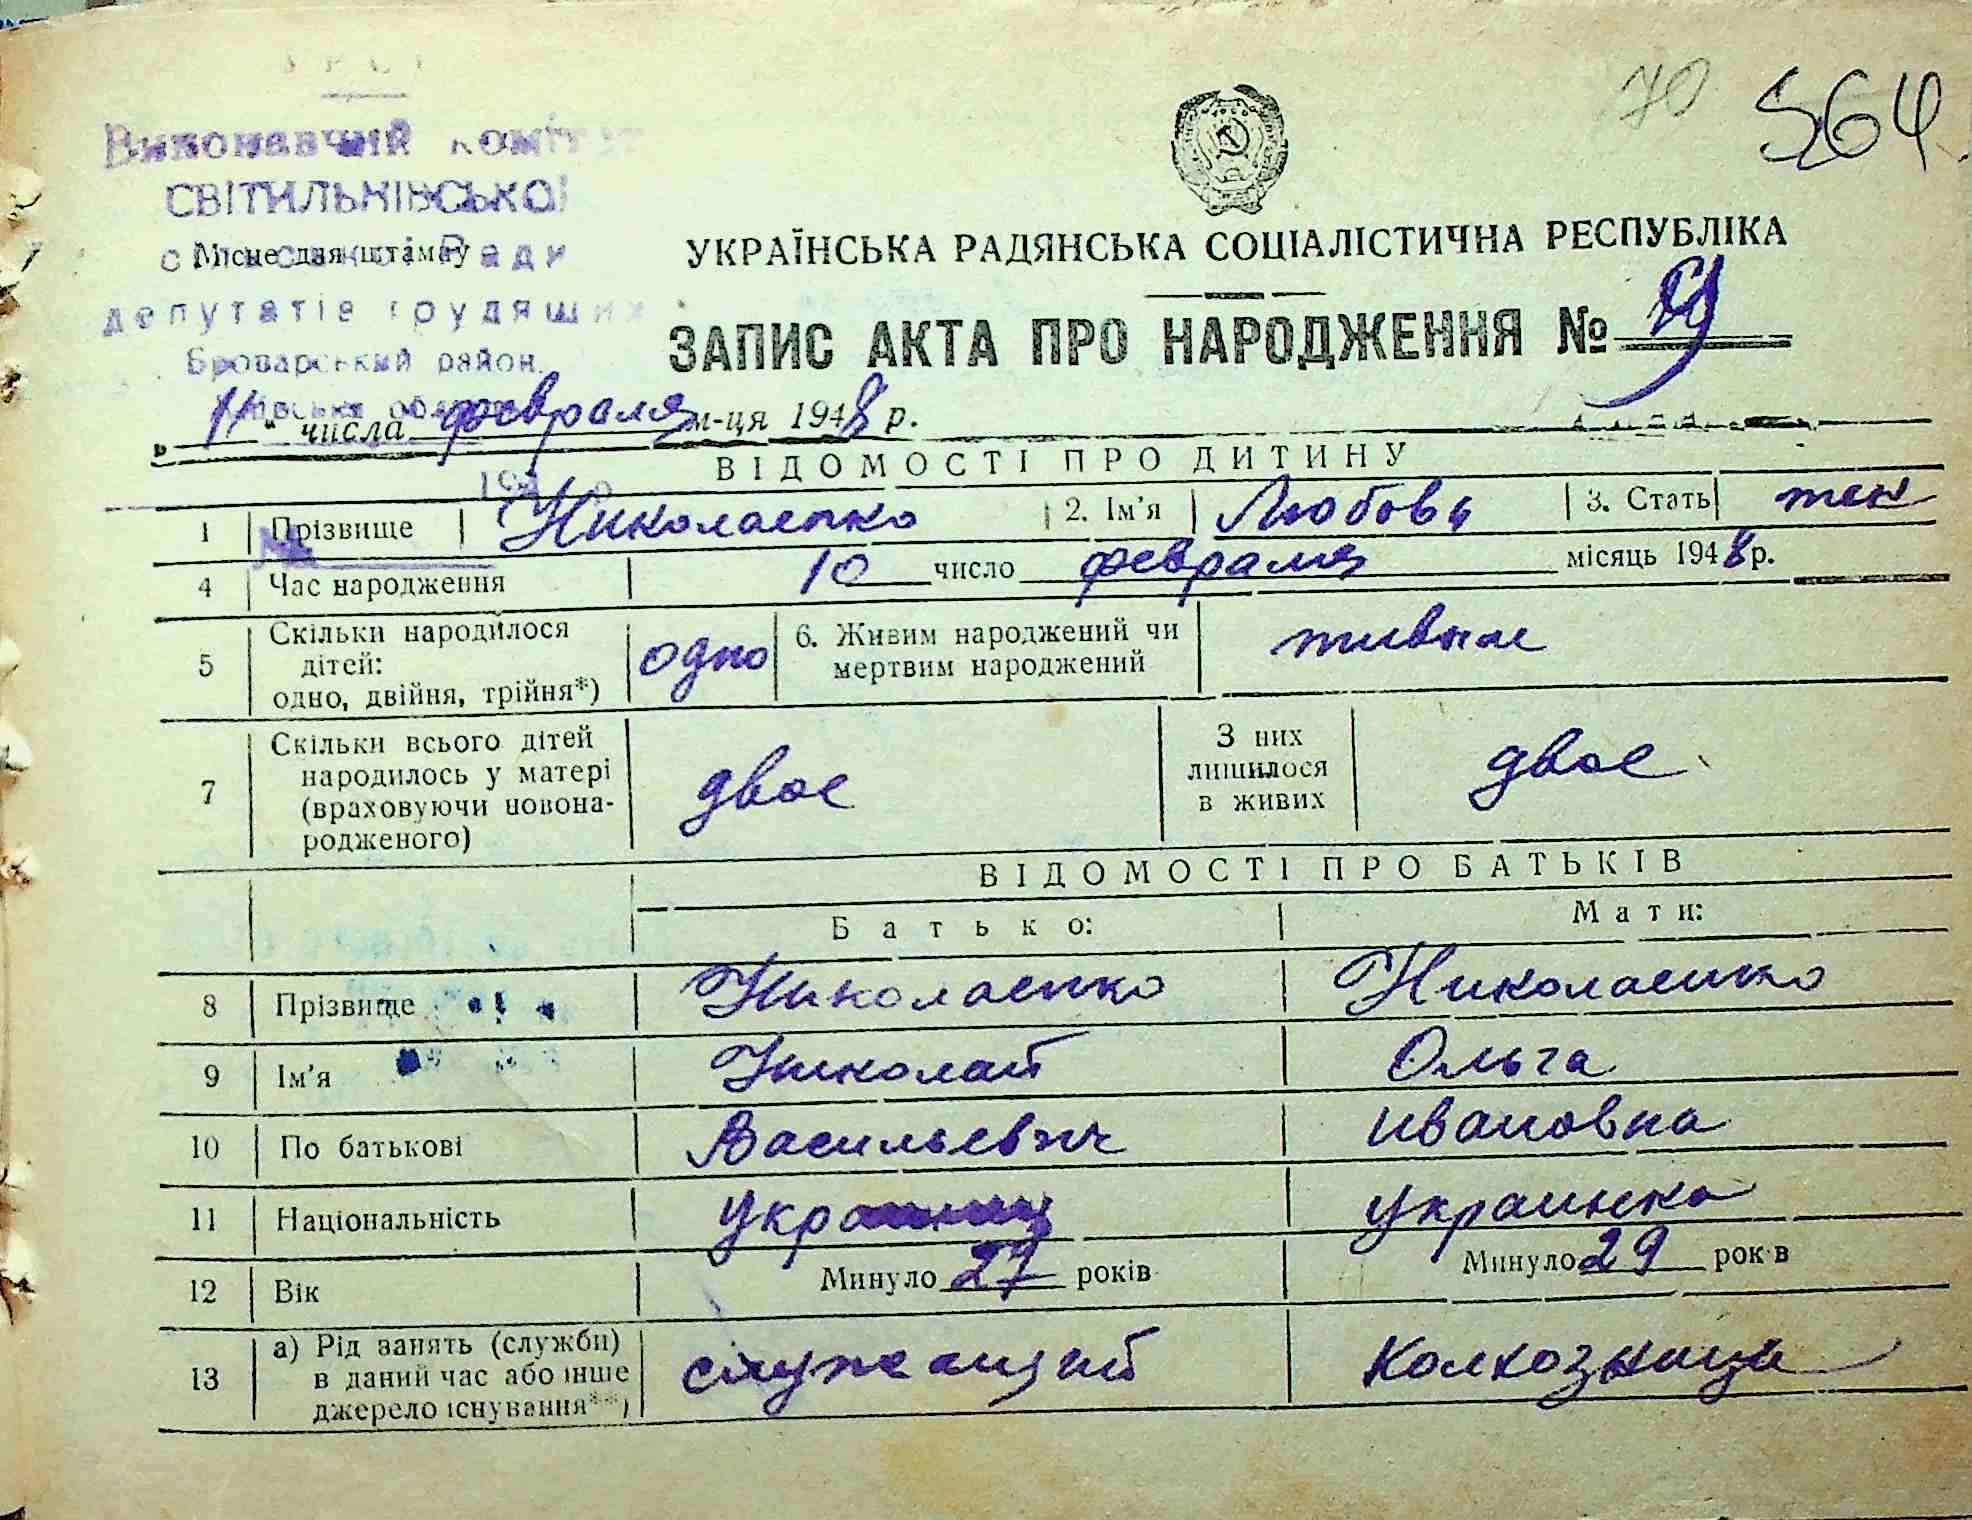 УРСР
Виконавчий комітет
СВІТИЛЬНІВСЬКОЇ
сільської Ради
депутатів трудящих
Броварський район,
Київська області
Місце для штампу
70 564
УКРАЇНСЬКА РАДЯНСЬКА СОЦІАЛІСТИЧНА РЕСПУБЛІКА
ЗАПИС АКТА ПРО НАРОДЖЕННЯ № 9
„ 11 “ числа февраля м-ця 1948 р.
ВІДОМОСТІ ПРО ДИТИНУ
1 Прізвище Николаенко 2. Ім'я Любовь 3. Стать жен
4 Час народження 10 число февраля місяць 1948 р.
5 Скільки народилося дітей: одно, двійня, трійня*) одно 6. Живим народжений чи мертвим народжений живые
7 Скільки всього дітей народилось у матері (враховуючи новонародженого) двое З них лишилося в живих двое
ВІДОМОСТІ ПРО БАТЬКІВ
Батько: Мати:
8 Прізвище Николаенко Николаенко
9 Ім'я Николай Ольга
10 По батькові Васильевич Ивановна
11 Національність украинец украинка
12 Вік Минуло 27 років Минуло 29 років
13 а) Рід занять (служби) в даний час або інше джерело існування**) служащий колхозница